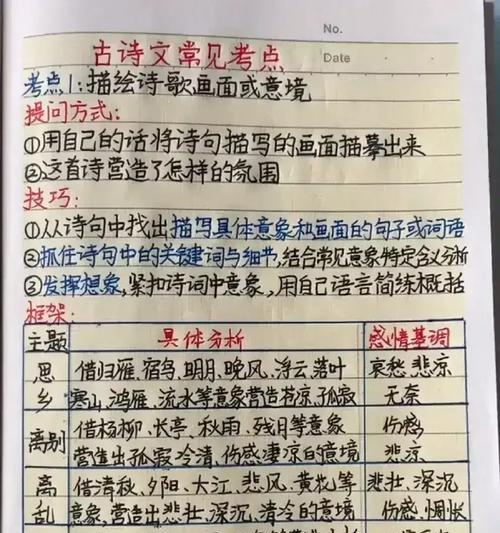 No.
古诗文常见考点
Date
考点1:描绘诗歌画面或意境
提问方式:
①用自己的话将诗句描写的画面描摹出来
②这首诗营造了怎样的氛围
技巧:
①从诗句中找出描写具体意象和画面的句子或词语
②抓住诗句中的关键词与细节,结合常见意象特定含义分析
③发挥想象,紧扣诗词中意象,用自己语言简练概括
框架:
主题 具体分析 感情基调
思 借归雁、宿鸟、明月、晚风、浮云、落叶 哀愁、悲凉
乡 寒山、鸿雁、流水等意象营造苍凉、孤寂 无奈
离别 借杨柳、长亭、秋雨、残月等意象 伤感
营造出孤寂冷清、伤感凄凉的意境 悲凉
离 借清秋、夕阳、大江、悲风、黄花等 悲壮、深沉
乱 意象,营造出悲壮、深沉、清冷的意境 伤感、惆怅